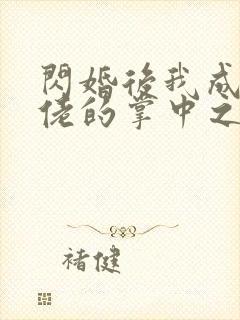 閃婚後我成
佬的掌中之
褚健